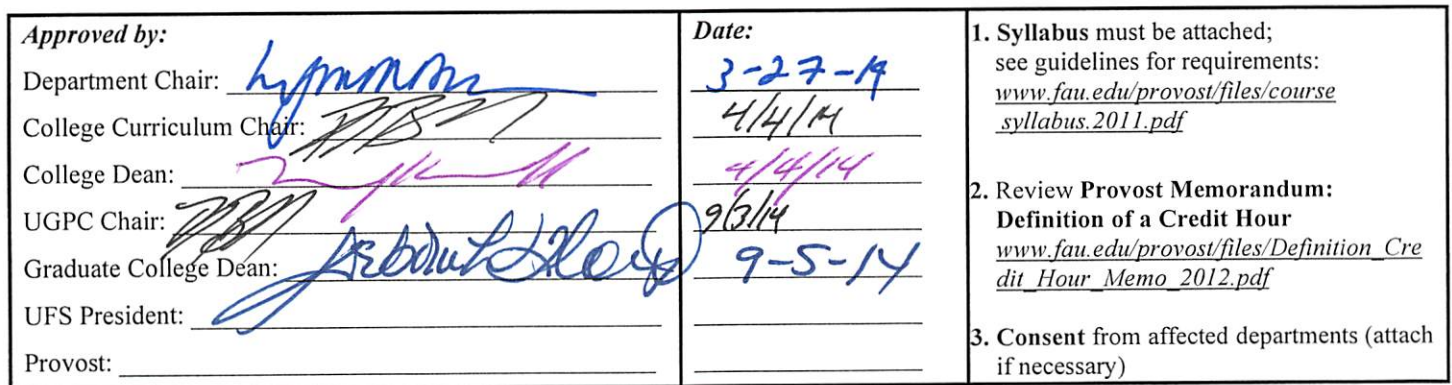 Approved by:
Department Chair:
College Curriculum Chair:
College Dean:
UGPC Chair:
Graduate College Dean:
UFS President:
Provost:
Date:
3-27-14
4/4/14
4/4/14
9/3/14
9-5-14
1. Syllabus must be attached;
see guidelines for requirements:
www.fau.edu/provost/files/course
_syllabus.2011.pdf
2. Review Provost Memorandum:
Definition of a Credit Hour
www.fau.edu/provost/files/Definition_Cre
dit_Hour_Memo_2012.pdf
3. Consent from affected departments (attach
if necessary)